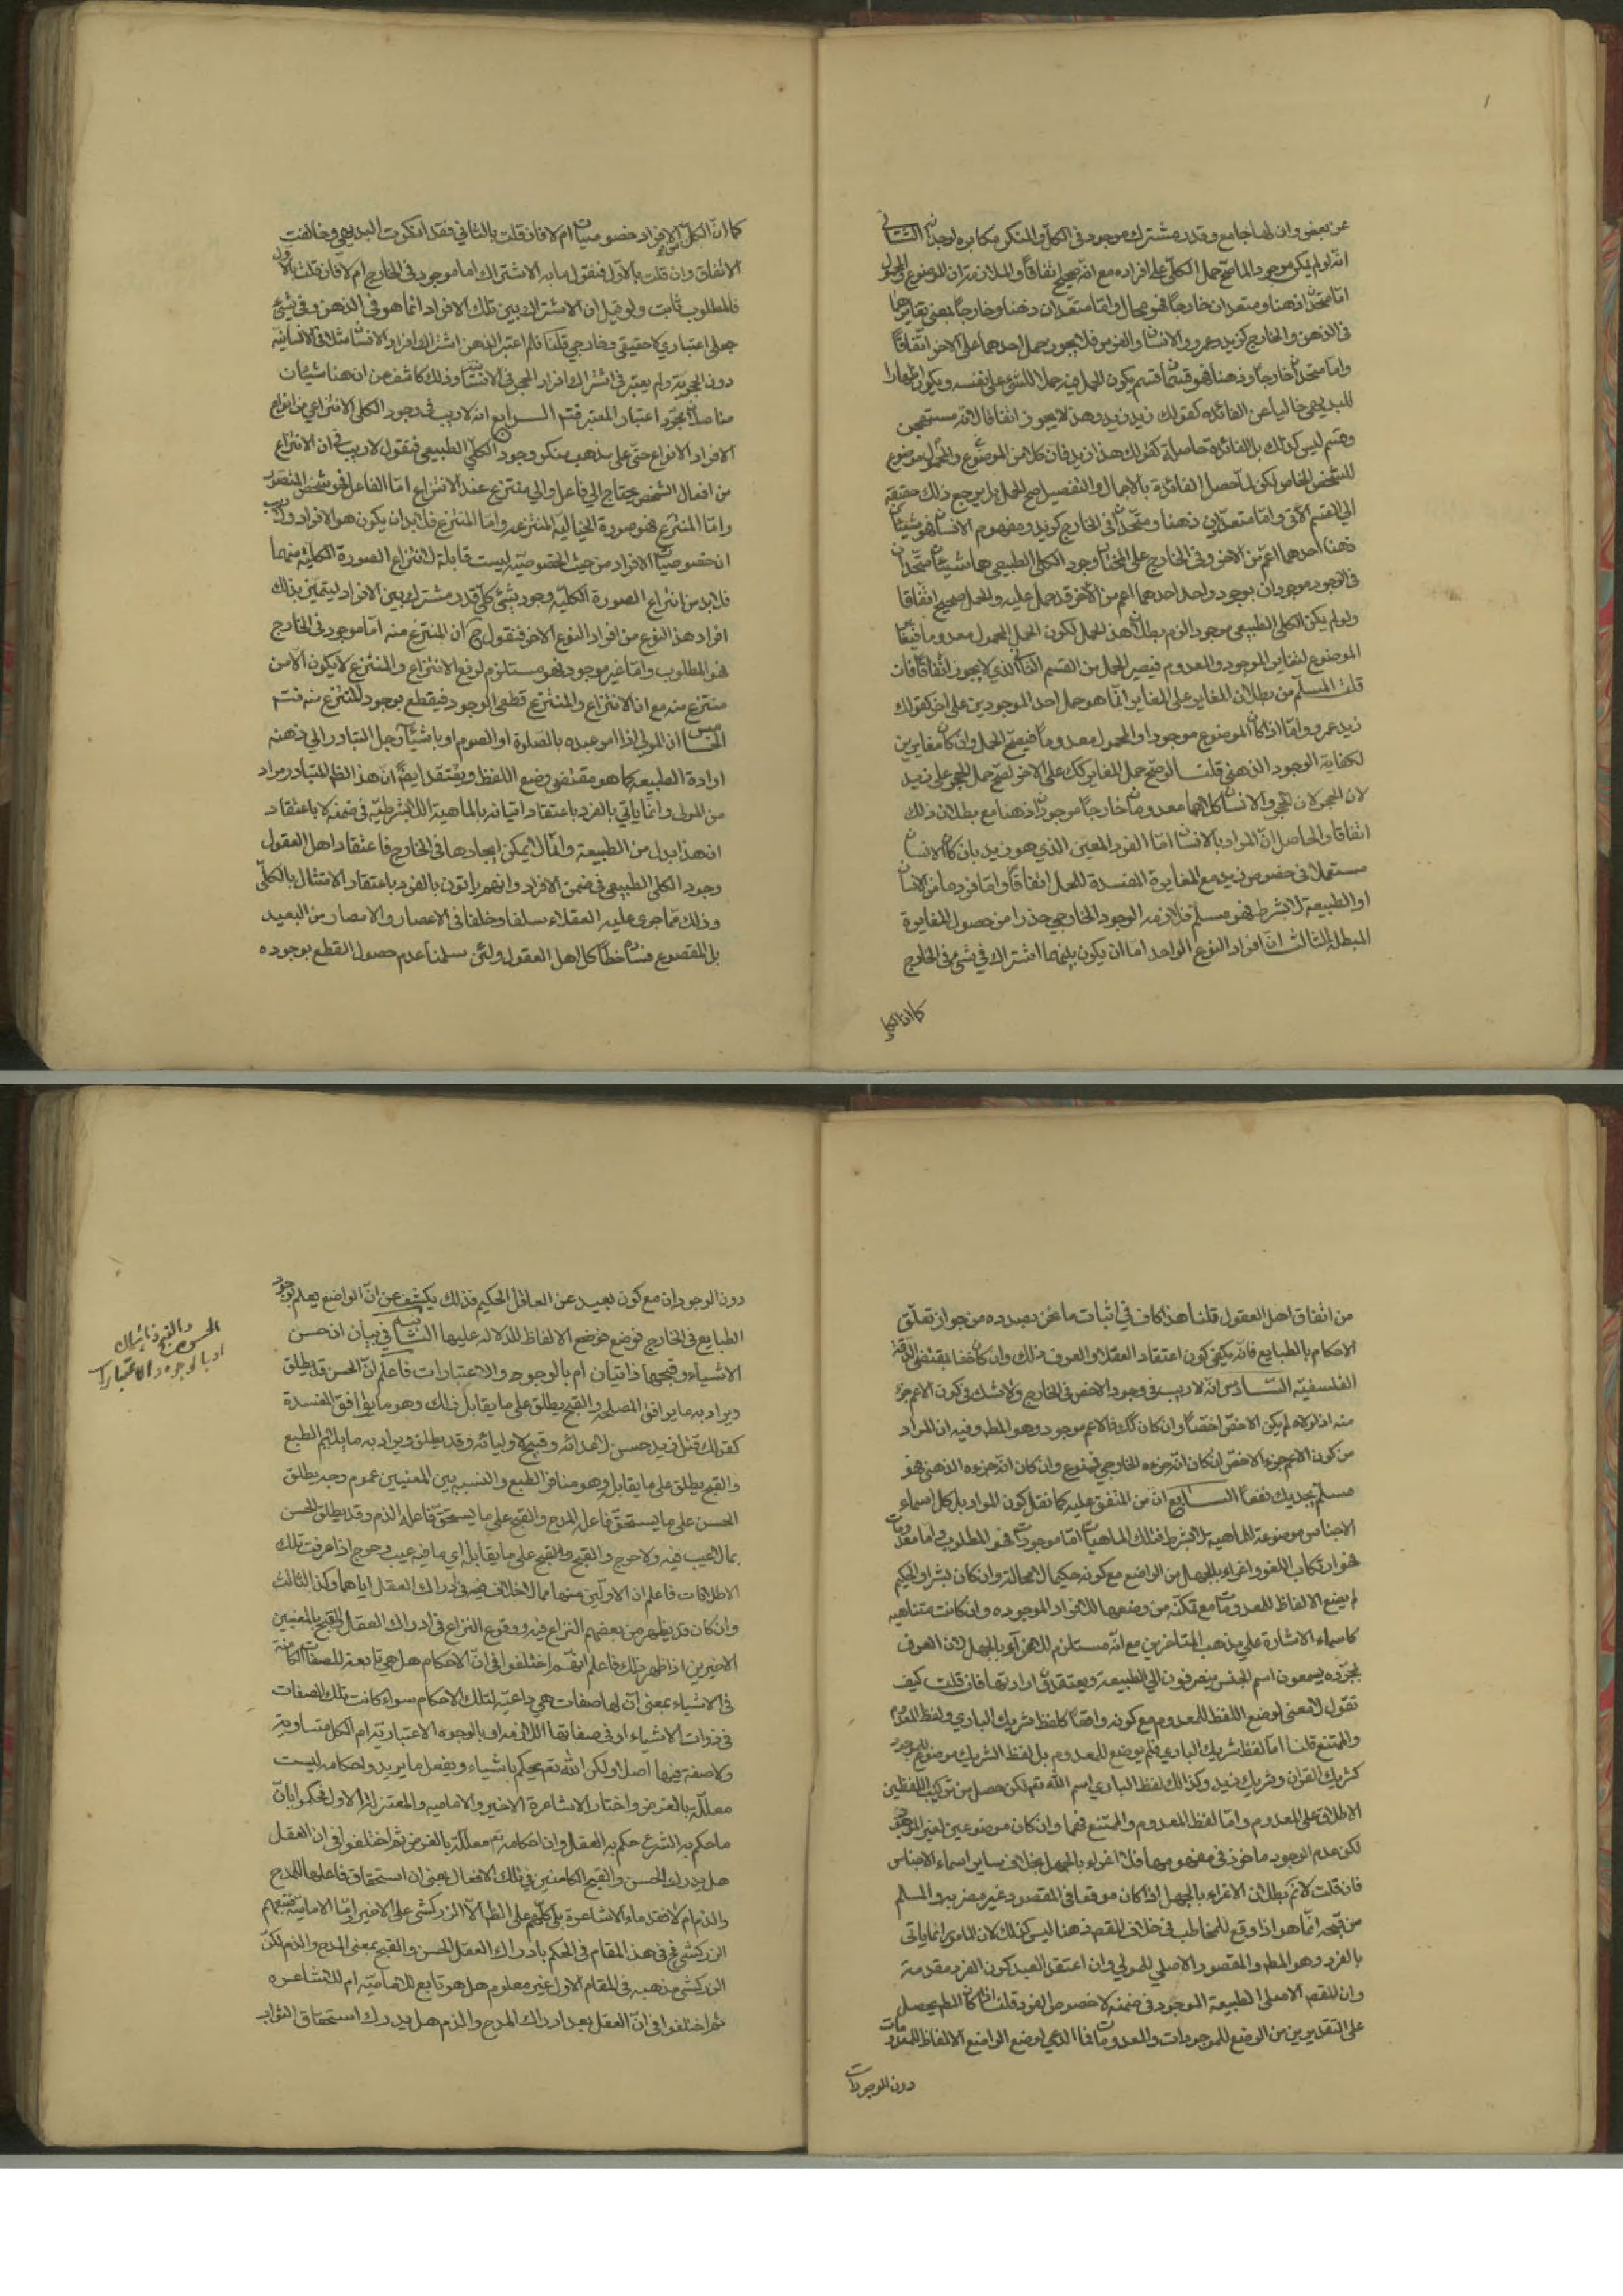 عن بعض وان لها جامع وقدر مشترك موجود فى الكل والمنكر مكابر لوجدانه الثانى
انه لو لم يكن موجود الما صح حمل الكلى على افراده مع انه صحيح اتفاقاً والملازمة ان الموضوع والمحمول
اما متحدان ذهنا ومتعددان خارجاً فهو محال او اما متعددان ذهنا وخارجاً بمعنى تغايرهما
فى الذهن والخارج كزيد وعمرو والانسان والفرس فلا يجوز حمل احدهما على الاخر اتفاقاً
واما متحدان خارجاً وذهنا فهو قسمان قسم يكون الحمل فيه حملا للشئ على نفسه ويكون اظهارا
للبديهى خاليا عن الفائدة كقولك زيد زيد وهذا لا يجوز اتفاقا لانه مستهجن
وقسم ليس كذلك بل الفائدة حاصلة كقولك هذا زيد فان كلا من الموضوع والمحمول موضوع
للشخص الخاص لكن لما حصل الفائدة بالاجمال والتفصيل صح الحمل بل يرجع ذلك حقيقة
الى القسم الاتى واما متعددان ذهنا ومتحدان فى الخارج كزيد ومفهوم الانسان فهو شيئان
ذهنا احدهما اعم من الاخر وفى الخارج على المختار وجود الكلى الطبيعى هما شيئان متحدان
فى الوجود موجودان بوجود واحد احدهما اعم من الاخر قد حمل عليه والحمل صحيح اتفاقا
ولو لم يكن الكلى الطبيعى موجود الزم بطلان هذا الحمل لكون المحمول معدوما فيتغاير
الموضوع لتغاير الموجود والمعدوم فيصير الحمل من القسم الثانى الذي لا يجوز اتفاقاً فان
قلت المسلم من بطلان المغاير على المغاير انما هو حمل احد الموجودين على اخر كقولك
زيد عمرو واما اذا كان الموضوع موجودا والمحمول معدوماً فيصح الحمل وان كان مغايرين
لكفاية الوجود الذهنى قلت لو صح حمل المغاير كك على الاخر لصح حمل الحجر على زيد
لان الحجر والانسان كلاهما معدومان خارجاً موجودان ذهنا مع بطلان ذلك
اتفاقا والحاصل ان المراد بالانسان اما الفرد المعين الذي هو زيد بان كان الانسان
مستعملا فى خصوص زيد مع المغايرة المفسدة للحمل اتفاقاً واما فرد ما من الانسان
او الطبيعة لا بشرط فهو مسلم فلازمه الوجود الخارجى حذرا من حصول المغايرة
المبطلة الثالث ان افراد النوع الواحد اما ان يكون بينهما اشتراك فى شئ فى الخارج
كما ان الكل
كما ان لكل من الافراد خصوصيات ام لا فان قلت بالثانى فقد انكرت البديهى وخالفت
الاتفاق وان قلت بالاول فنقول ما به الاشتراك اما موجود فى الخارج ام لا فان قلت بالاول
فالمطلوب ثابت ولو قيل ان الاشتراك بين تلك الافراد انما هو فى الذهن وفى شئ
جعلى اعتبارى لا حقيقى وخارجى قلنا فلم اعتبر الذهن اشتراك افراد الانسان مثلا فى الانسانية
دون الحجرية ولم يعتبر فى اشتراك افراد الحجر فى الانسانية وذلك كاشف عن ان هنا شيئان
متاصلا لا بمجرد اعتبار المعتبر فتم الرابع انه لا ريب فى وجود الكلى الانتزاعى من انواع
الافراد الانواع حتى على مذهب منكر وجود الكلى الطبيعى فنقول لا ريب فى ان الانتزاع
من افعال الشخص يحتاج الى فاعل والى منتزع عند الانتزاع اما الفاعل فهو شخص المتصور
واما المنتزع فهو صورة الخيالية المنتزعه واما المنتزع فلابد ان يكون هو الافراد ولا ريب
ان خصوصيات الافراد من حيث الخصوصية ليست قابلة لانتزاع الصورة الكلية منهما
فلابد من انتزاع الصورة الكلية وجود شئ كلى قدر مشترك بين الافراد ليتميز بذلك
افراد هذا النوع من افراد النوع الاخر فنقول ح ان المنتزع منه اما موجود فى الخارج
فهو المطلوب واما غير موجود فهو مستلزم لرفع الانتزاع والمنتزع لا يكون الا من
منتزع منه مع ان الانتزاع والمنتزع قطعى الوجود فيقطع بوجود المنتزع منه فتم
الخامس ان المولى اذا امر عبده بالصلوة او الصوم او باشياء اخر جل المتبادر الى ذهنه
ارادة الطبيعة كما هو مقتضى وضع اللفظ ويعتقد ايضً ان هذا الظ المتبادر مراد
من المولى وانما ياتى بالفرد باعتقاد اتيانه بالماهية اللا بشرطية فى ضمنه لا باعتقاد
ان هذا بدل من الطبيعة وانها لا يمكن ايجادها فى الخارج فاعتقاد اهل العقول
وجود الكلى الطبيعى فى ضمن الافراد وانهم ياتون بالفرد باعتقاد الامتثال بالكلى
وذلك مما جرى عليه العقلاء سلفا وخلفا فى الاعصار والامصار من البعيد
بل المقطوع فساد خطأ كل اهل العقول ولئن سلمنا عدم حصول القطع بوجوده
من اتفاق اهل العقول قلنا هذا كاف فى اثبات ما نحن بصدده من جواز تعلق
الاحكام بالطبايع فانه يكفى كون اعتقاد العقلاء والعرف ذلك وان كان خفا بمقتضى الدقة
الفلسفية السادس انه لا ريب فى وجود الاخص فى الخارج ولا شك فى كون الاعم جزء
منه اذ لولاه لم يكن الاخص اخصا وان كان كك فالاعم موجود وهو المط وفيه ان المراد
من كون الاعم جزء الاخص ان كان انه جزءه الخارجى فممنوع وان كان انه جزءه الذهنى فهو
مسلم لا يجديك نفعاً السابع ان من المتفق عليه كما نقل كون المراد بل كل اسماء
الاجناس موضوعة للماهية لا بشرط فتلك الماهيات اما موجودات فهو المطلوب واما معدومات
فهو ارتكاب اللغو واغراء بالجهل من الواضع مع كونه حكيما لا محالة وان كان بشرا والحكيم
لم يضع الالفاظ للمعدومات مع تمكنه من وضعها للافراد الموجوده وان كانت متناهيه
كاسماء الاشارة على مذهب المتاخرين مع انه مستلزم للاغراء بالجهل لان العرف
بمجرده يسمعون اسم الجنس ينصرفون الى الطبيعة ويعتقدون ارادتها فان قلت كيف
تقول لا معنى لوضع اللفظ للمعدوم مع كونه واقعاً كلفظ شريك الباري ولفظ المعدوم
والممتنع قلنا اما لفظ شريك الباري فلم يوضع للمعدوم بل لفظ الشريك موضوع للموجود
كشريك القران وشريك زيد وكذلك لفظ الباري اسم الله تع لكن حصل من تركيب اللفظين
الاطلاق على المعدوم واما لفظ المعدوم والممتنع فهما وان كان موضوعين لغير الموجود
لكن عدم الوجود ماخوذ فى مفهومها فلا اغراء بالجهل بخلاف ساير اسماء الاجناس
فان قلت لا نم بطلان الاغراء بالجهل اذا كان موقعا فى المقصود غير مضر به والمسلم
من قبحه انما هو اذا وقع المخاطب فى خلاف المقصود هنا ليس كذلك لان المامور انما ياتى
بالفرد وهو المط والمقصود الاصلى للمولى وان اعتقد العبد كون الفرد مقدمة
وان المقصد الاصلى الطبيعة الموجود فى ضمنه لا خصوص الفرد قلنا اذا كان المط يحصل
على التقديرين من الوضع للموجودات والمعدومات فما الداعى لوضع الواضع الالفاظ للمعدومات
دون الموجودات
دون الوجودان مع كون بعيد عن العاقل الحكيم فذلك يكشف عن ان الواضع يعلم بوجود
الطبايع فى الخارج فوضع فوضع الالفاظ للدلالة عليها الثانى فى بيان ان حسن
الاشياء وقبحها ذاتيان ام بالوجوه والاعتبارات فاعلم ان الحسن قد يطلق
ويراد به ما يوافق المصلحة والقبح يطلق على ما يقابل ذلك وهو ما يوافق المفسدة
كقولك قتل زيد حسن لاعدائه وقبيح لاوليائه وقد يطلق ويراد به ما يلايم الطبع
والقبح يطلق على ما يقابله وهو منافر الطبع والنسبة بين المعنيين عموم وجه يطلق
الحسن على ما يستحق فاعله المدح والقبح على ما يستحق فاعله الذم وقد يطلق الحسن
بما لا عيب فيه ولا حرج والقبح والقبح على ما يقابله اي ما فيه عيب وحرج اذا عرفت تلك
الاطلاقات فاعلم ان الاولين منهما مما لا خلاف فيه فى ادراك العقل اياهما وكذا الثالث
وان كان قد يظهر من بعضهم النزاع فيه ووقوع النزاع فى ادراك العقل القبح بالمعنيين
الاخيرين اذا ظهر ذلك فاعلم انهم اختلفوا فى ان الاحكام هل هى تابعة للصفات الكامنة
فى الاشياء بمعنى ان لها صفات هى داعية لتلك الاحكام سواء كانت تلك الصفات
فى ذوات الاشياء او فى صفاتها اللازمه او بالوجوه الاعتبارية ام الكل متساوية
ولا صفة فيها اصلا ولكن الله تع يحكم باشياء ويفعل ما يريد واحكامه ليست
معللة بالغرض واختار الاشاعرة الاخير والاماميه والمعتزلة الاول فحكموا بان
ما حكم به الشرع حكم به العقل وان احكامه تع معللة بالغرض ثم اختلفوا فى ان العقل
هل يدرك الحسن والقبح الكامنين فى تلك الافعال بمعنى ان استحقاق فاعلها للمدح
والذم ام لا فقدماء الاشاعرة بل كلهم على الظ الا الزركشى على الاخير واما الامامية فبعضهم
الزركشى فح فى هذا المقام فى الحكم بادراك العقل الحسن والقبح بمعنى المدح والذم لكن
الزركشى مذهبه فى المقام الاول غير معلوم هل هو تابع للامامية ام للاشاعره
ثم اختلفوا فى ان العقل بعد ادراك المدح والذم هل يدرك استحقاق الثواب
الحسن والقبح ذاتيان
او بالوجوه والاعتبارات